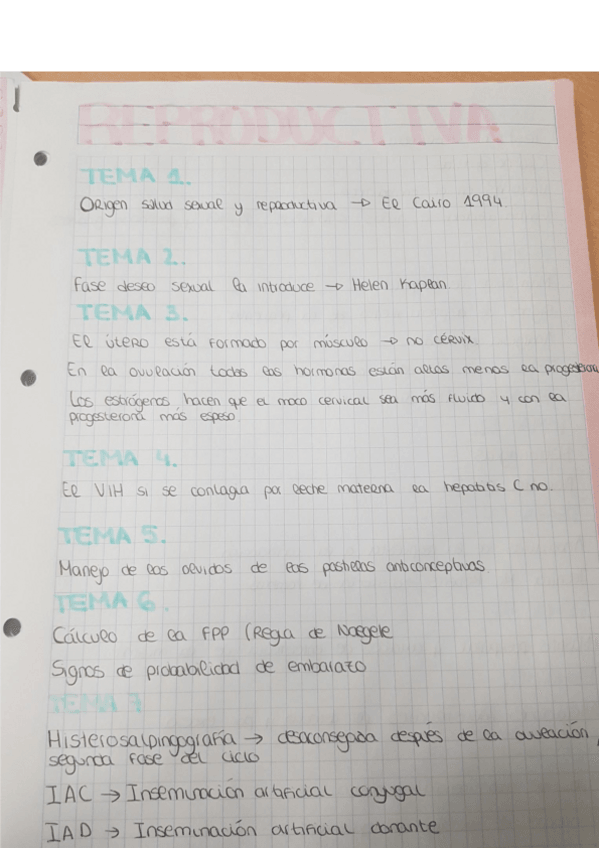 REPRODUCTIVA
TEMA 1.
Origen salud sexual y reproductiva → El Cairo 1994.
TEMA 2.
Fase deseo sexual la introduce → Helen Kaplan.
TEMA 3.
El útero está formado por músculo → no cérvix.
En la ovulación todas las hormonas están altas menos la
Los estrógenos hacen que el moco cervical sea más fluido y con la
progesterona más espeso.
TEMA 4.
El VIH si se contagia por leche materna la hepatitis C no.
TEMA 5.
Manejo de los olvidos de las pastillas anticonceptivas.
TEMA 6.
Cálculo de la FPP (Regla de Naegele
Signos de probabilidad de embarazo
TEMA 7
Histerosalpingografía → desaconsejada después de la ovulación,
segunda fase del ciclo
IAC → Inseminación artificial conyugal
IAD → Inseminación artificial donante